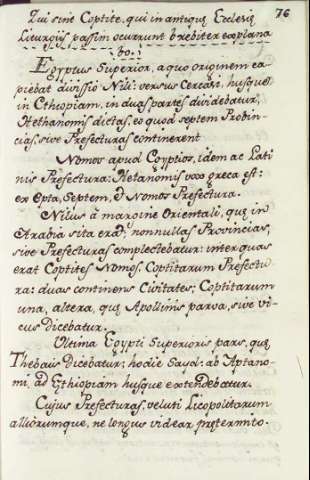 76
Qui sint Coptitę, qui in antiquis Ecclesię
Liturgiis passim ocurrunt breviter explana
bo.
Egyptus Superior, a quo originem ca-
piebat divisio Nili: versus Cercasi, husque
in Ethiopiam, in duas partes dividebatur,
Hethanomis dictas, eo quod septem Provin-
cias, sive Prefecturas continerent
Nomos apud Egyptios, idem ac Lati
nis Prefectura: Hetanomis vox greca est:
ex Epta, Septem, & Nomos Prefectura.
Nilus à margine Orientali, quę in
Arabia sita erat, nonnullas Provincias,
sive Prefecturas complectebatur: inter quas
erat Coptites Nomos, Coptitarum Prefectu
ra: duas continens Civitates; Coptitarum
una, altera, quę Apollinis parva, sive vi-
cus dicebatur.
Ultima Egypti Superioris pars, quę
Thebais dicebatur; hodie Sayd: ab Aptano-
mi, ad Ethiopiam husque extendebatur.
Cujus Prefecturas, veluti Licopolitarum
alliorumque, ne longus videar prętermito.